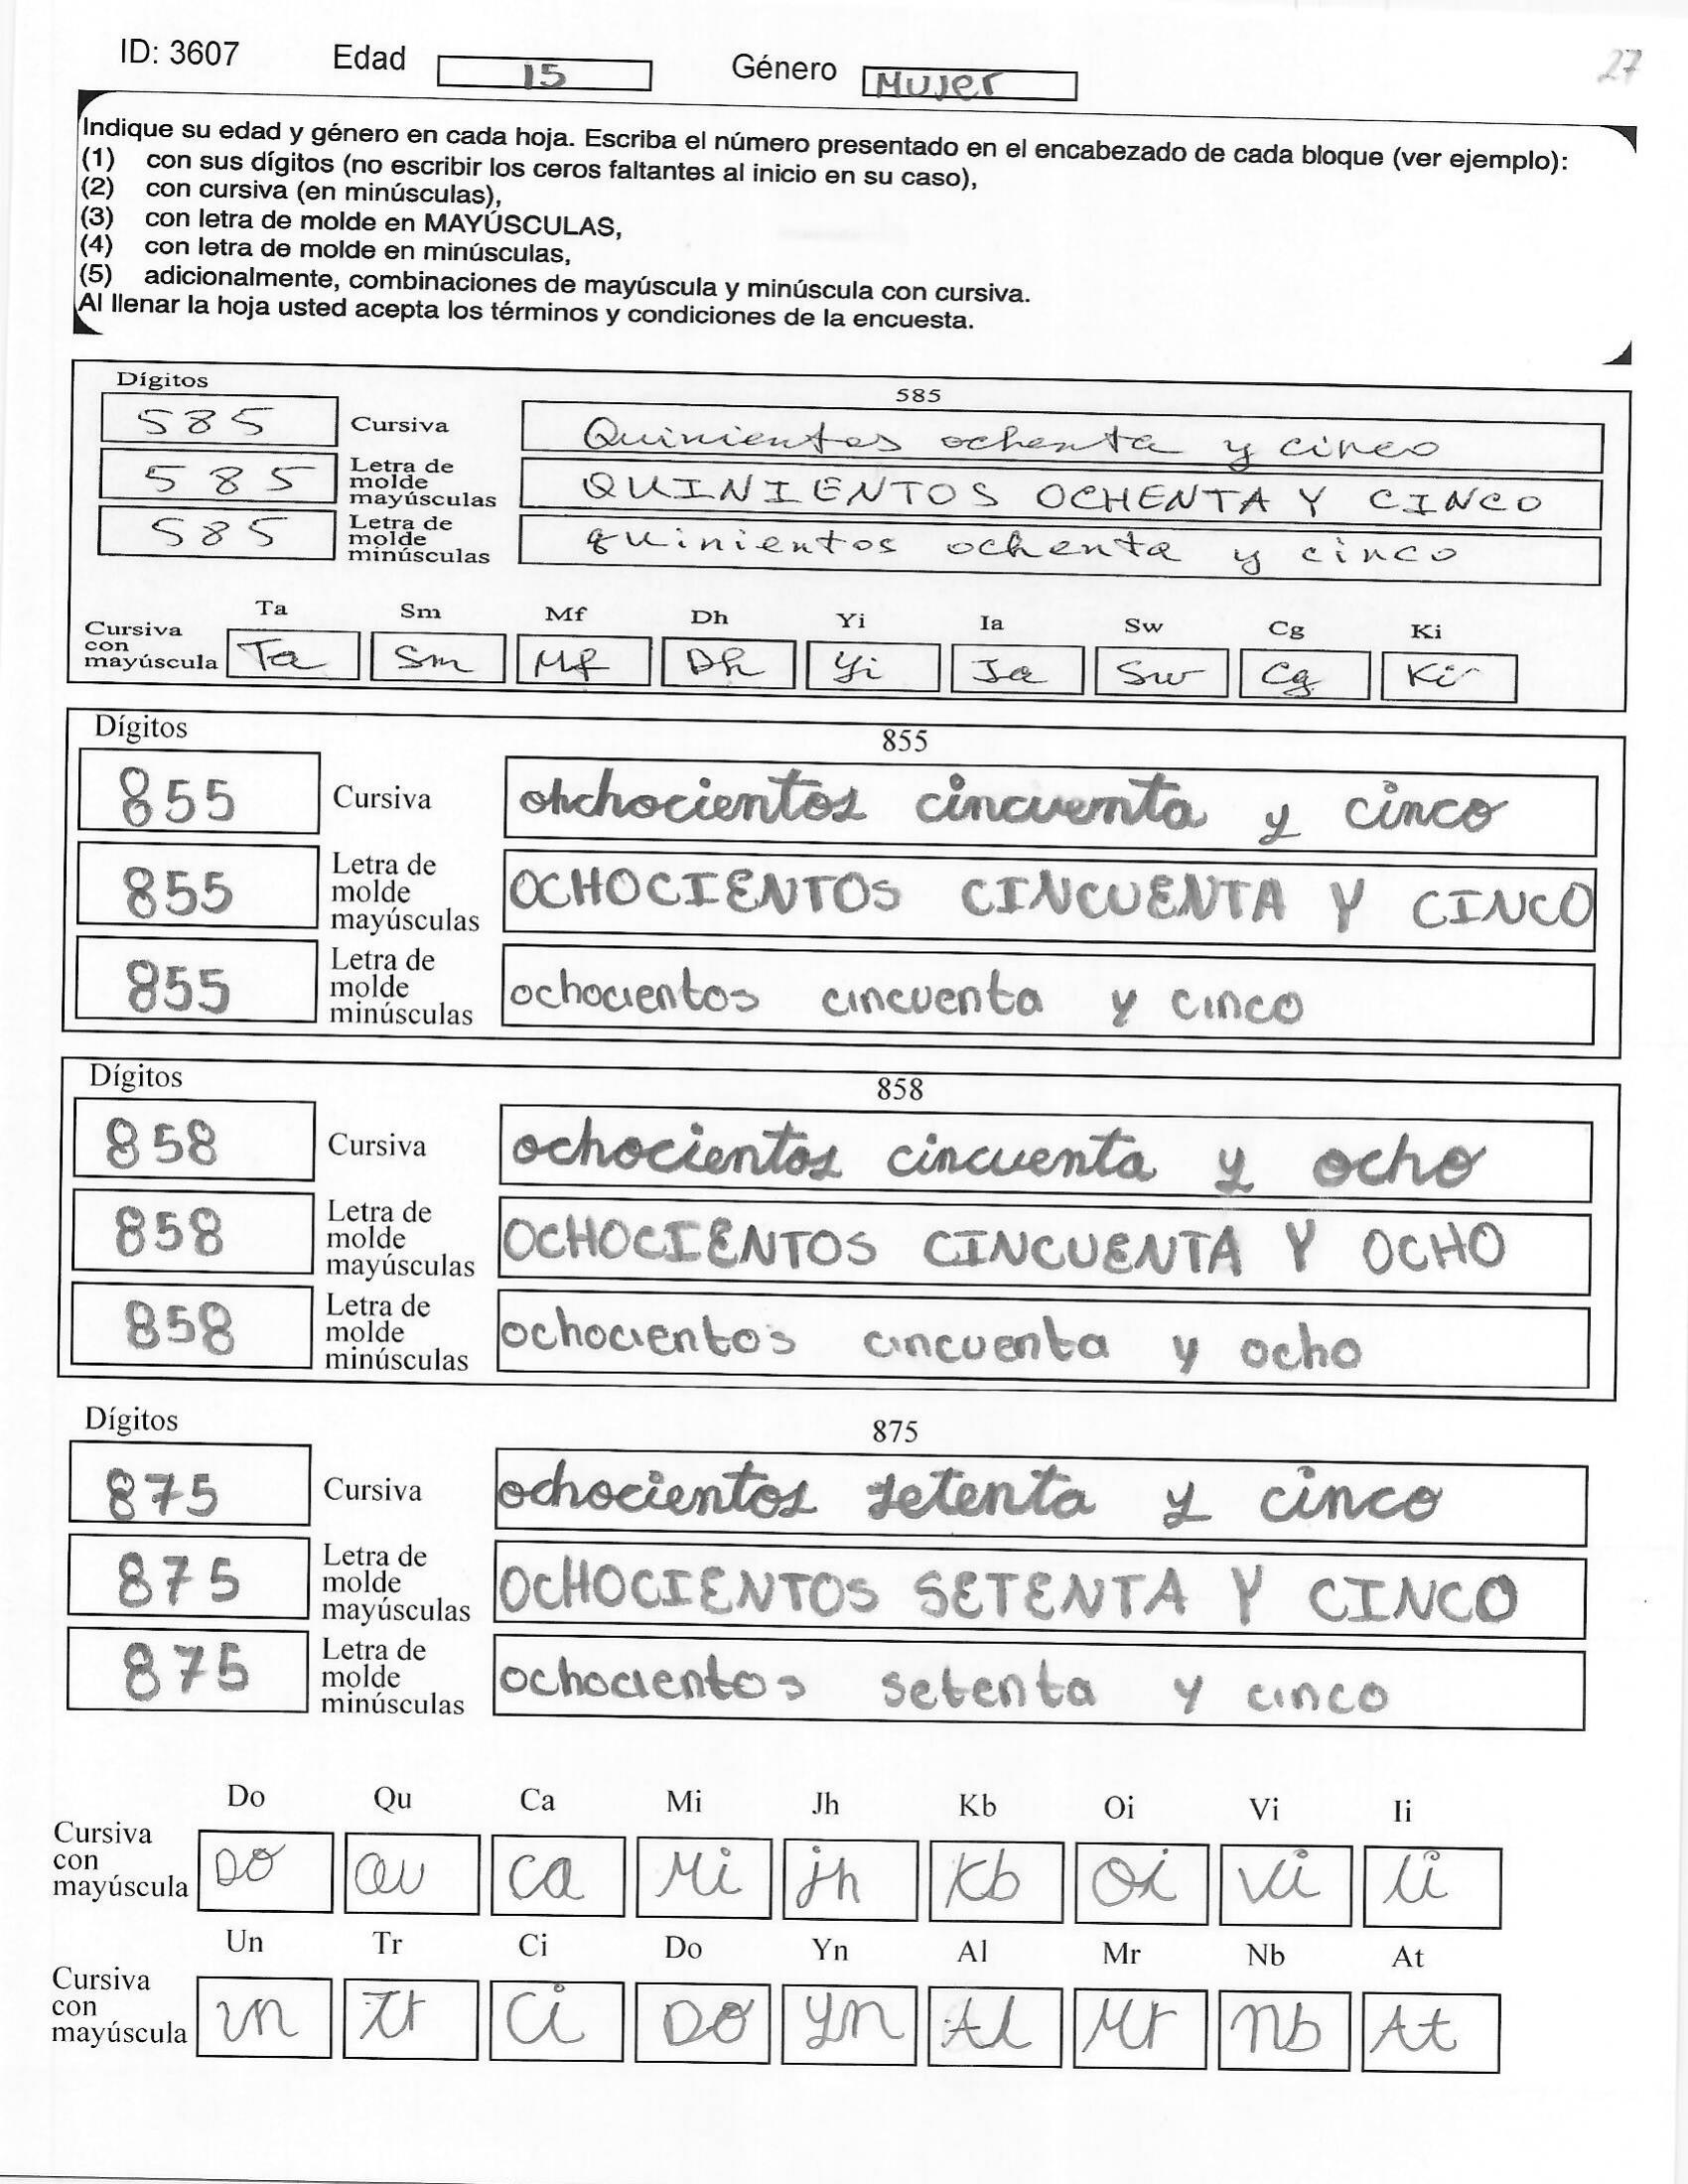 ID: 3607 Edad 15 Género Mujer 27
Indique su edad y género en cada hoja. Escriba el número presentado en el encabezado de cada bloque (ver ejemplo):
(1) con sus dígitos (no escribir los ceros faltantes al inicio en su caso),
(2) con cursiva (en minúsculas),
(3) con letra de molde en MAYÚSCULAS,
(4) con letra de molde en minúsculas,
(5) adicionalmente, combinaciones de mayúscula y minúscula con cursiva.
Al llenar la hoja usted acepta los términos y condiciones de la encuesta.
Dígitos 585
585 Cursiva Quinientos ochenta y cinco
585 Letra de molde mayúsculas QUINIENTOS OCHENTA Y CINCO
585 Letra de molde minúsculas quinientos ochenta y cinco
Ta Sm Mf Dh Yi Ia Sw Cg Ki
Cursiva con mayúscula Ta Sm Mf Dh Yi Ia Sw Cg Ki
Dígitos 855
855 Cursiva ohchocientos cincuenta y cinco
855 Letra de molde mayúsculas OCHOCIENTOS CINCUENTA Y CINCO
855 Letra de molde minúsculas ochocientos cincuenta y cinco
Dígitos 858
858 Cursiva ochocientos cincuenta y ocho
858 Letra de molde mayúsculas OCHOCIENTOS CINCUENTA Y OCHO
858 Letra de molde minúsculas ochocientos cincuenta y ocho
Dígitos 875
875 Cursiva ochocientos setenta y cinco
875 Letra de molde mayúsculas OCHOCIENTOS SETENTA Y CINCO
875 Letra de molde minúsculas ochocientos setenta y cinco
Do Qu Ca Mi Jh Kb Oi Vi Ii
Cursiva con mayúscula Do Qu Ca Mi jh Kb Oi Vi Ii
Un Tr Ci Do Yn Al Mr Nb At
Cursiva con mayúscula Un Tr Ci Do Yn Al Mr Nb At